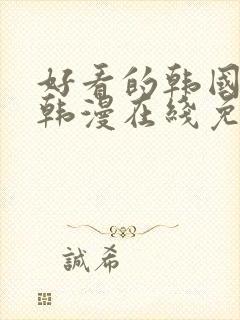 好看的韩國
韩漫在线免
誠希